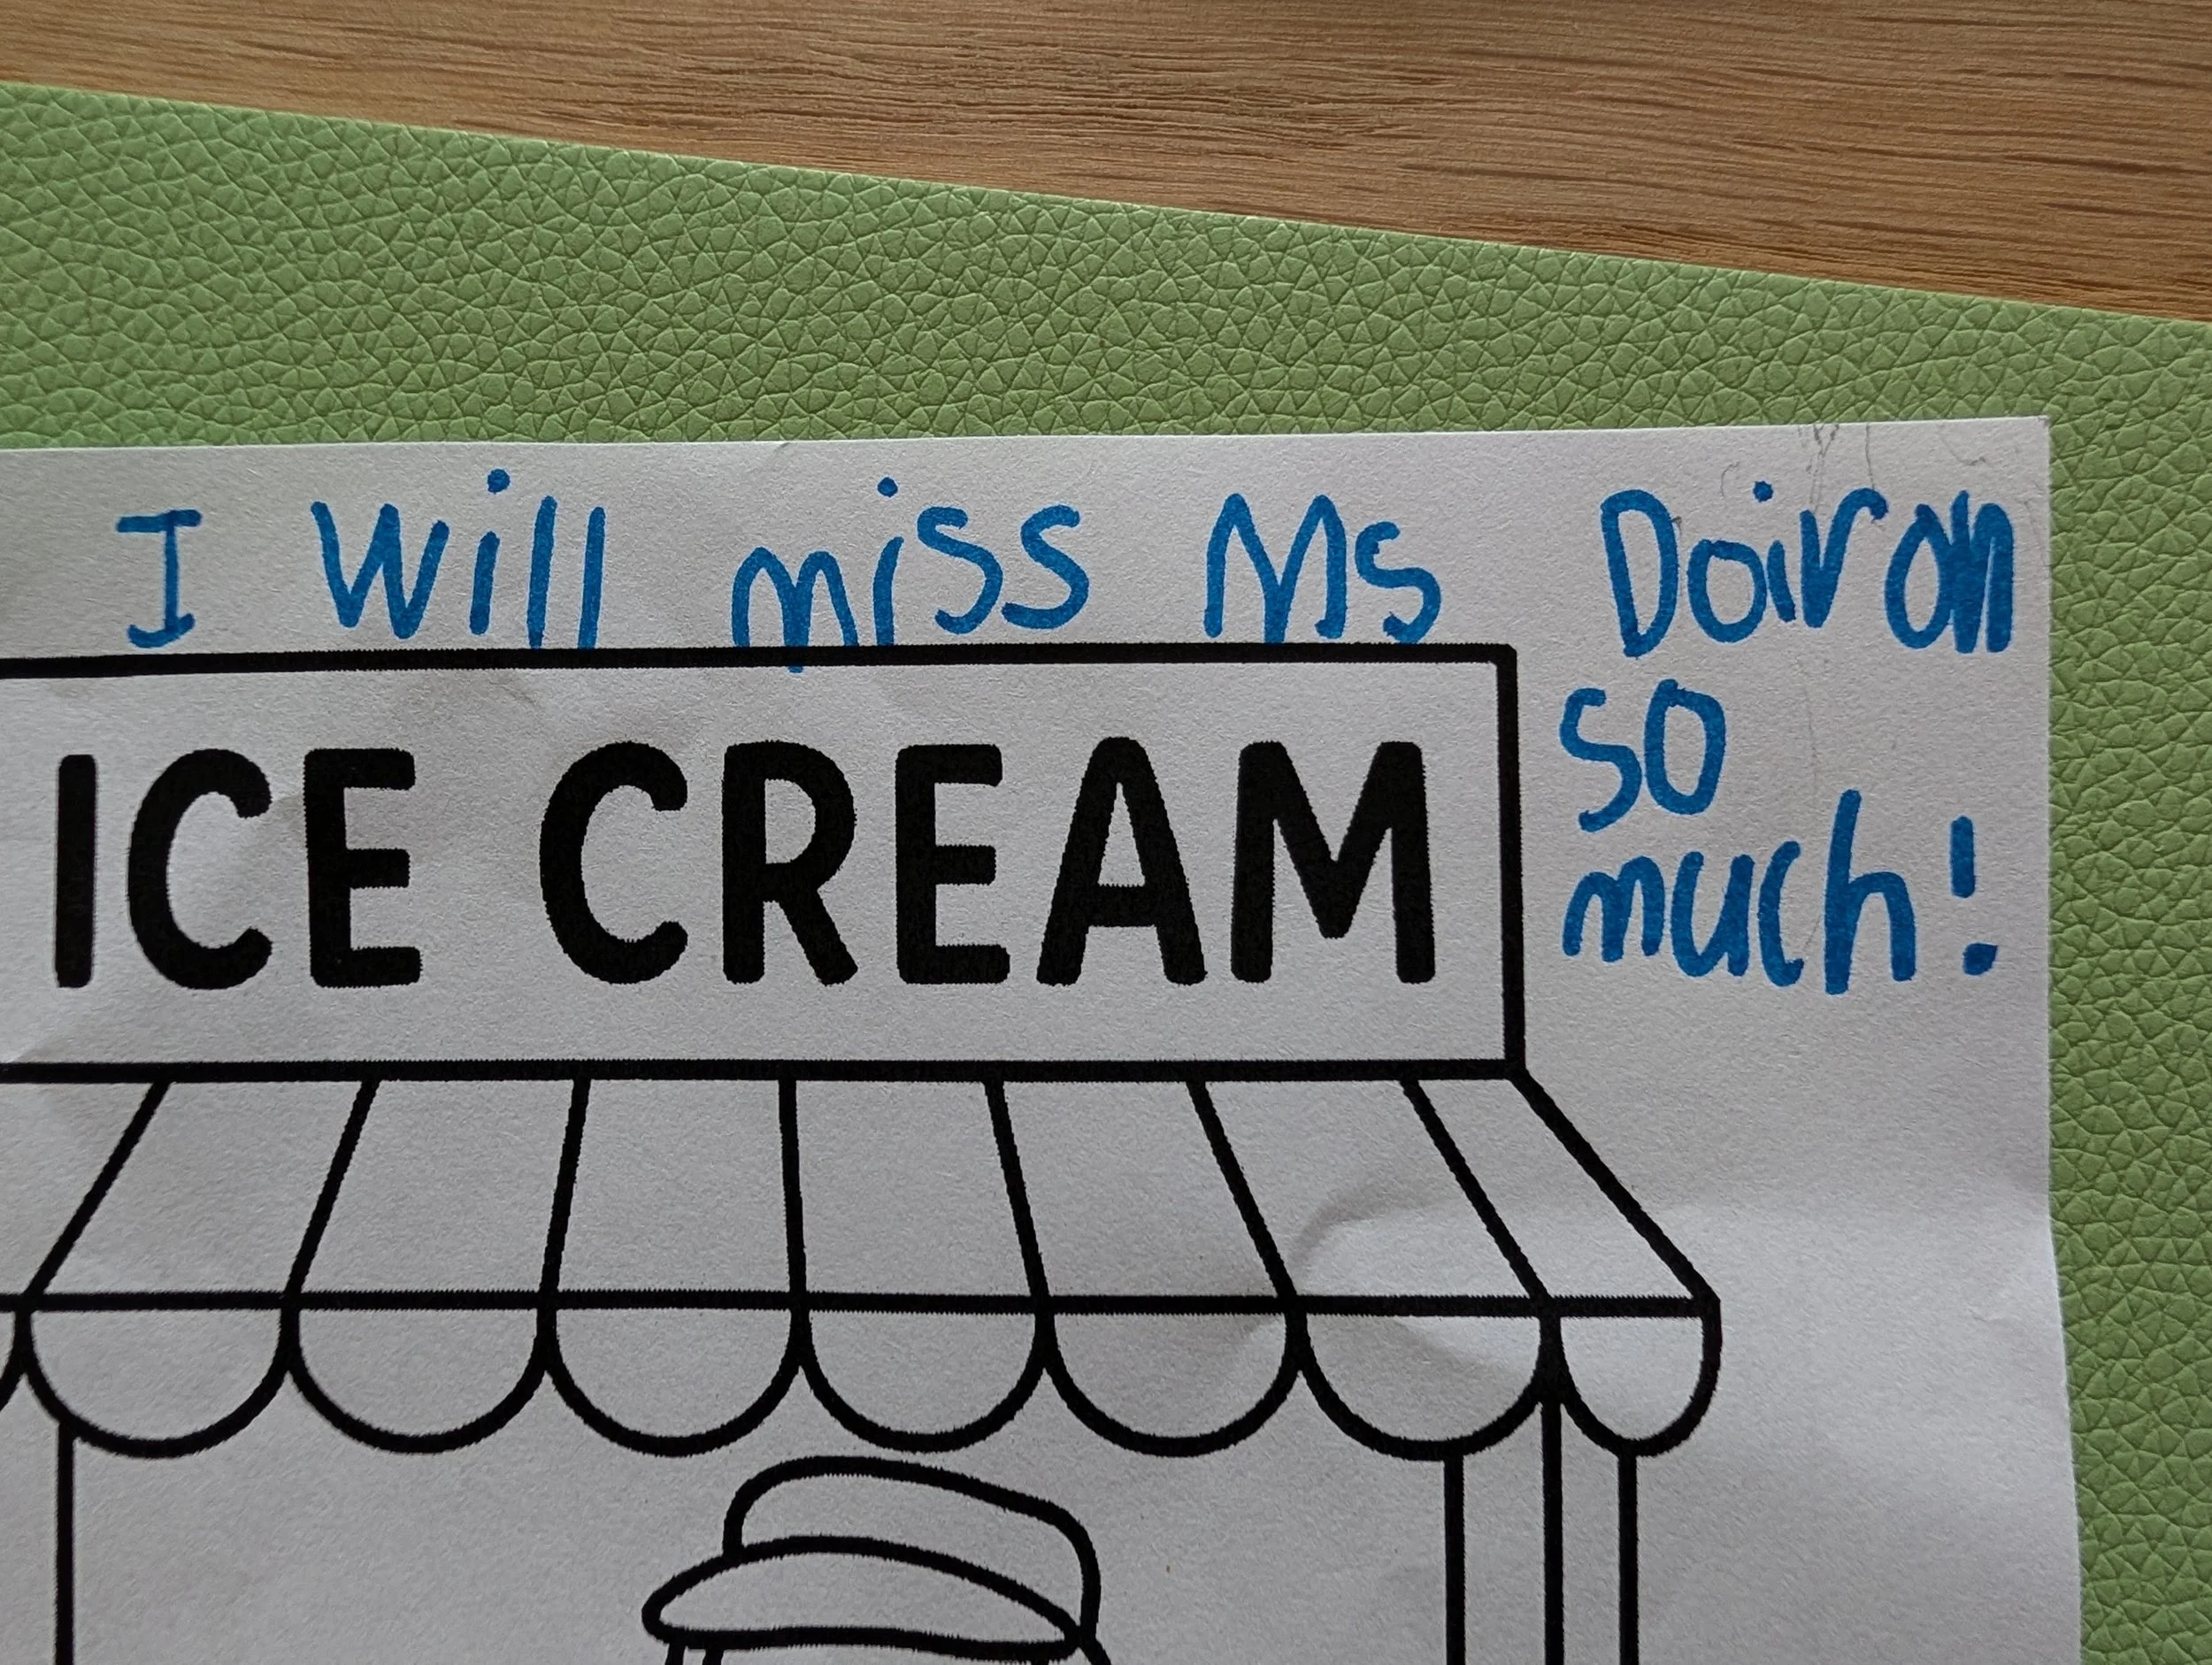 I Will miss Ms Doiron
so
much!
ICE CREAM